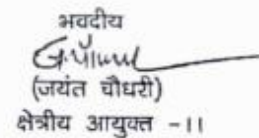 भवदीय
(जयंत चौधरी)
क्षेत्रीय आयुक्त -II